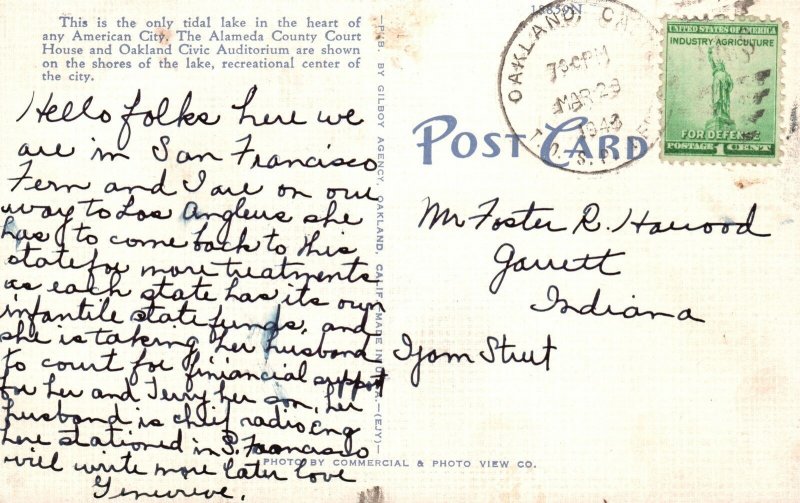 This is the only tidal lake in the heart of
any American City. The Alameda County Court
House and Oakland Civic Auditorium are shown
on the shores of the lake, recreational center of
the city.
Hello folks here we
are in San Francisco
Fern and I are on our
way to Los Angleus she
has to come back to this
state for more treatments
as each state has its own
infantile state funds, and
she is taking her husband
to court for finiancial support
for her and Terry her son, her
husband is chief radio eng
here stationed in S. Francisco
will write more later love
Genevieve.
PUB. BY GILBOY AGENCY, OAKLAND, CALIF.
MADE IN U.S.A.—(EJY)—
PHOTO BY COMMERCIAL & PHOTO VIEW CO.
POST CARD
OAKLAND, CALIF
730PM
MAR 29
1943
UNITED STATES OF AMERICA
INDUSTRY AGRICULTURE
FOR DEFENSE
POSTAGE 1 CENT
Mr Foster R. Harwood
Garrett
Indiana
Ijam Street